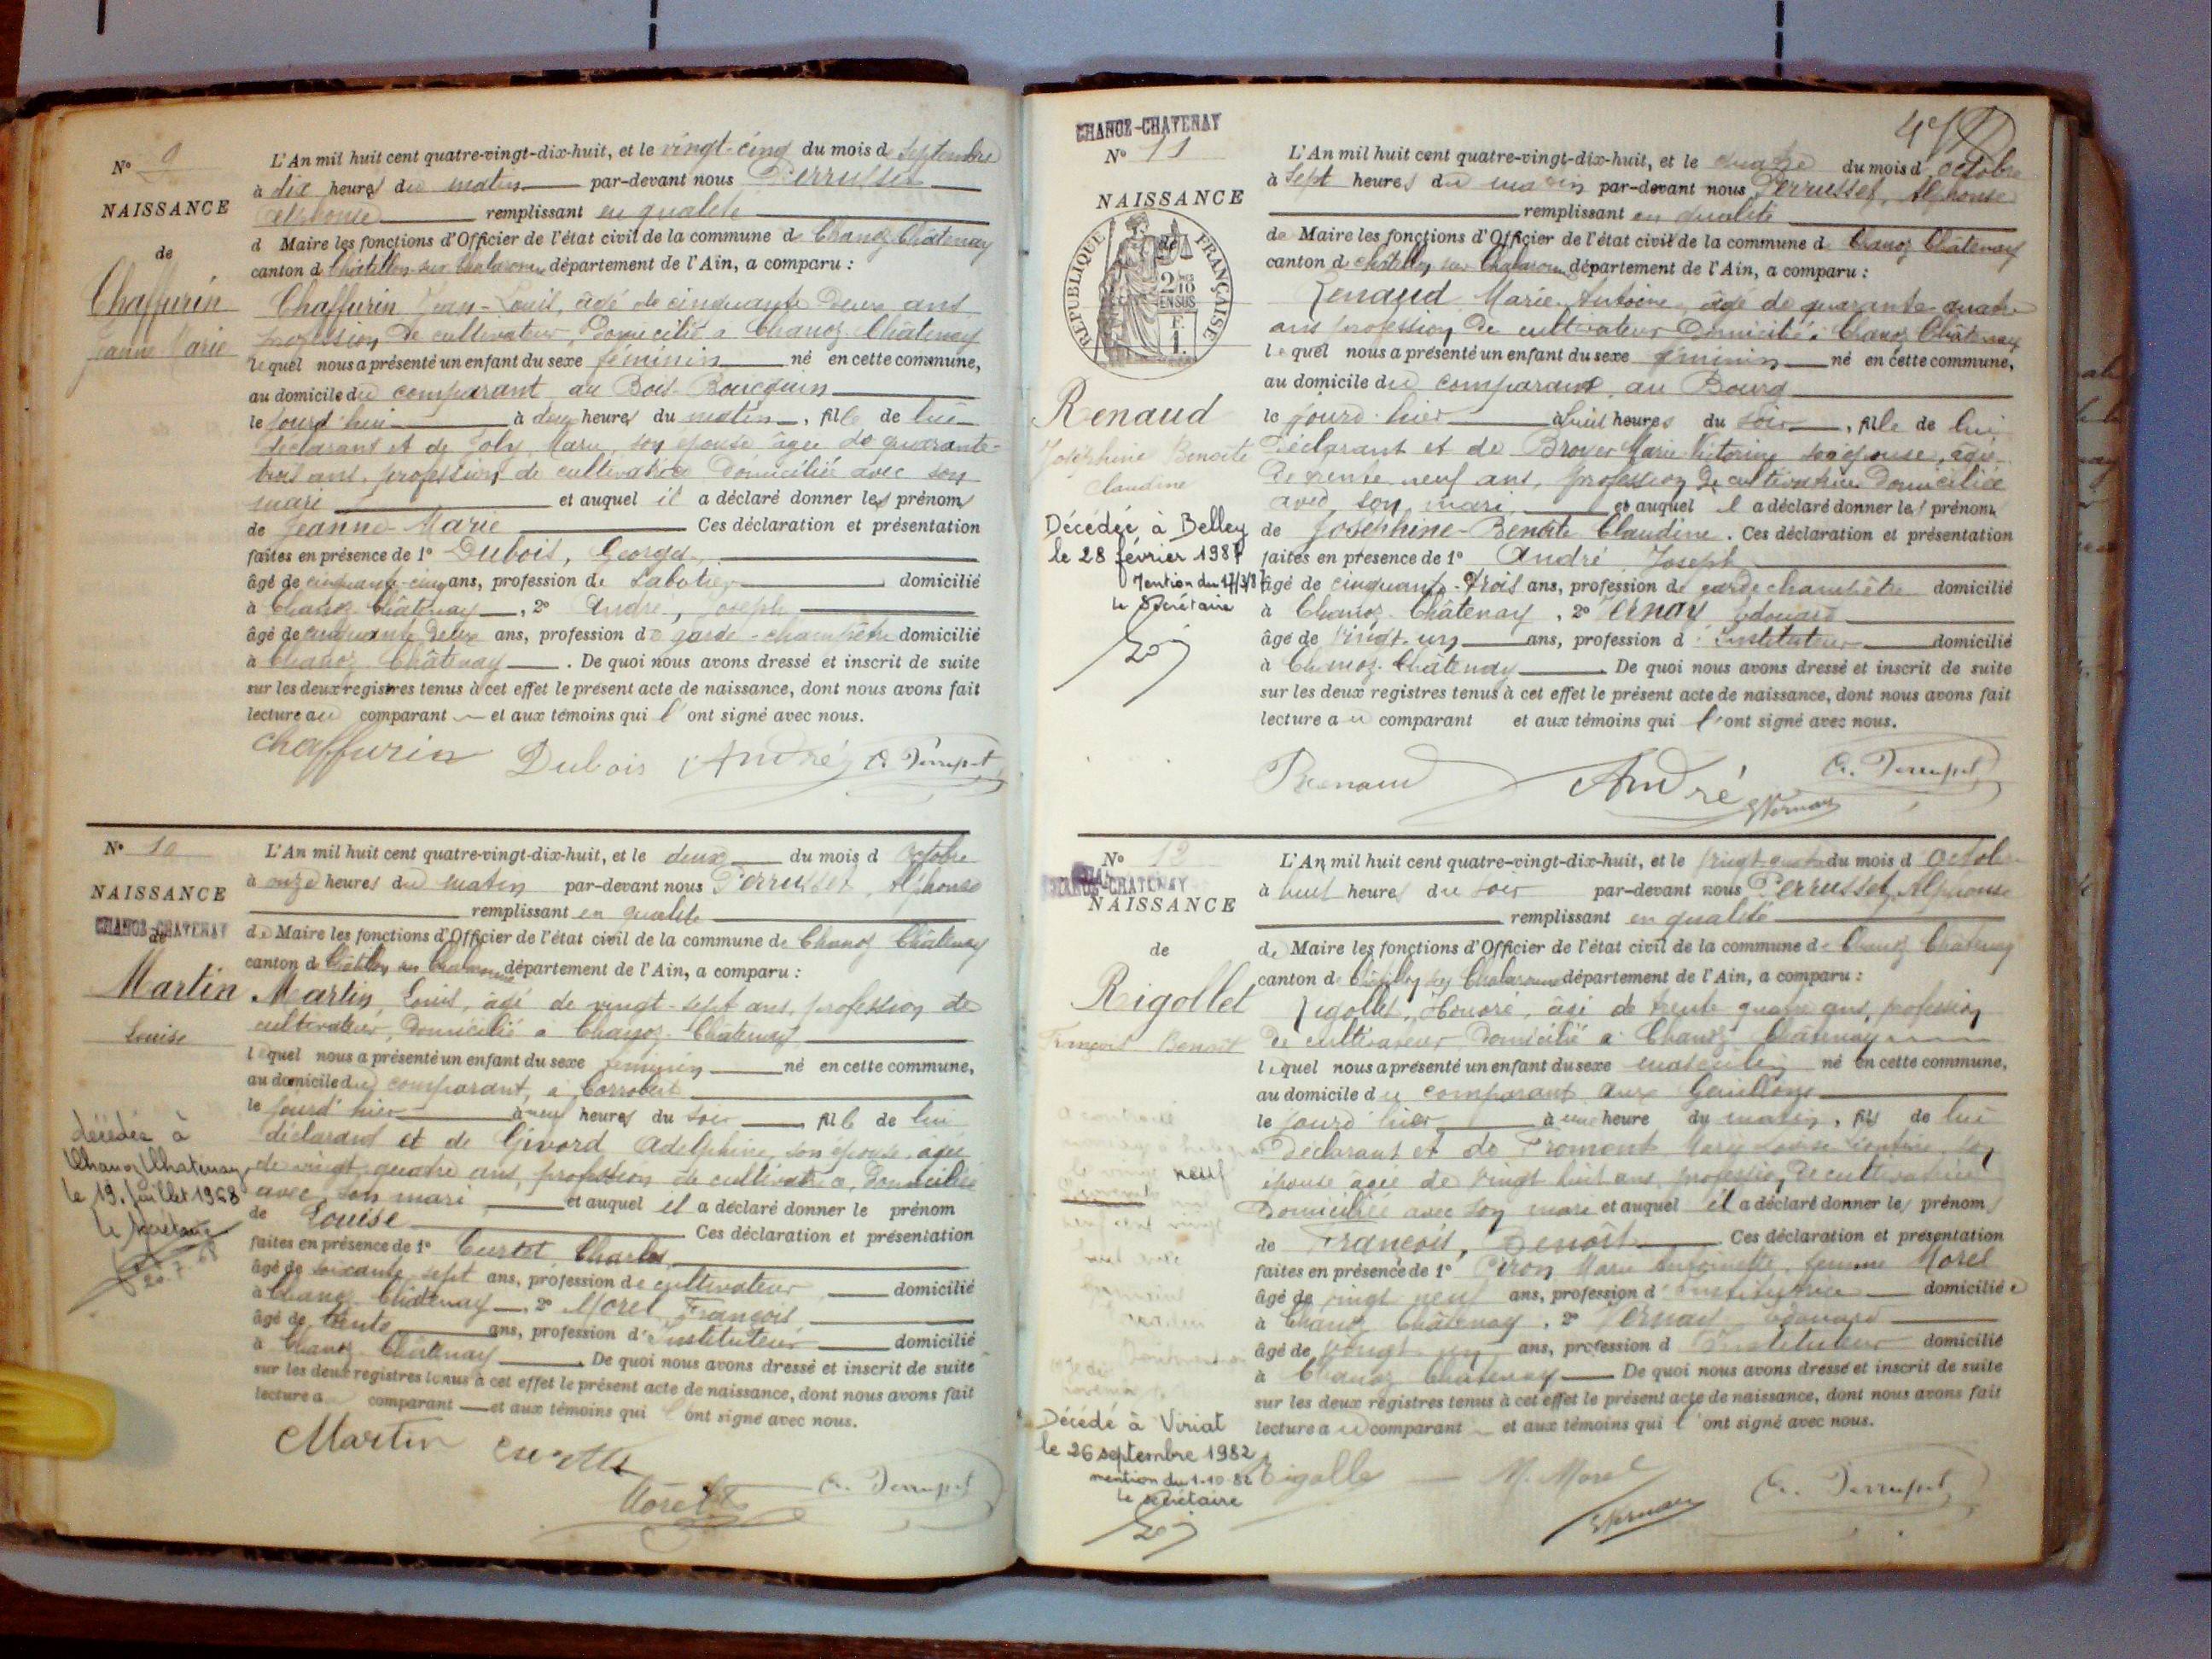 N° 9
NAISSANCE
de
Chaffurin
Jeanne Marie
L'An mil huit cent quatre-vingt-dix-huit, et le vingt-cinq du mois de Septembre
à dix heures du matin par-devant nous Perrusset
Alphonse remplissant en qualité
d Maire les fonctions d'Officier de l'état civil de la commune de Chanoz-Châtenay
canton de Châtillon-sur-Chalaronne département de l'Ain, a comparu :
Chaffurin Jean-Louis, âgé de cinquante deux ans
profession de cultivateur, Domicilié à Chanoz-Châtenay
lequel nous a présenté un enfant du sexe féminin né en cette commune,
au domicile du comparant au Bois-
le jourd'hui à deux heures du matin, fille de lui
déclarant et de Joly Marie son épouse âgée de quarante-
trois ans, profession de cultivatrice Domiciliée avec son
mari et auquel il a déclaré donner les prénoms
de Jeanne-Marie Ces déclaration et présentation
faites en présence de 1° Dubois, Georges,
âgé de cinquante-cinq ans, profession de Sabotier domicilié
à Chanoz-Châtenay, 2° André, Joseph
âgé de cinquante deux ans, profession de garde-champêtre domicilié
à Chanoz-Châtenay. De quoi nous avons dressé et inscrit de suite
sur les deux registres tenus à cet effet le présent acte de naissance, dont nous avons fait
lecture au comparant et aux témoins qui l'ont signé avec nous.
Chaffurin Dubois André A. Perrusset
N° 10
NAISSANCE
CHANOZ-CHATENAY
de
Martin
Louise
décédée à
Chanoz Chatenay
le 19 juillet 1968
le secrétaire
20.7.68
L'An mil huit cent quatre-vingt-dix-huit, et le deux du mois d Octobre
à onze heures du matin par-devant nous Perrusset, Alphonse
remplissant en qualité
de Maire les fonctions d'Officier de l'état civil de la commune de Chanoz Châtenay
canton de Châtillon sur Chalaronne département de l'Ain, a comparu :
Martin, Louis, âgé de vingt-sept ans, profession de
cultivateur, Domicilié à Chanoz-Châtenay
lequel nous a présenté un enfant du sexe féminin né en cette commune,
au domicile du comparant, à Corrobert
le jourd'hier à neuf heures du soir, fille de lui
déclarant et de Givord Adelphine, son épouse, âgée
de vingt quatre ans, profession de cultivatrice, Domiciliée
avec son mari et auquel il a déclaré donner le prénom
de Louise Ces déclaration et présentation
faites en présence de 1° Curtet, Charles,
âgé de soixante sept ans, profession de cultivateur domicilié
à Chanoz-Châtenay, 2° Morel, François,
âgé de trente ans, profession d'Instituteur domicilié
à Chanoz-Châtenay De quoi nous avons dressé et inscrit de suite
sur les deux registres tenus à cet effet le présent acte de naissance, dont nous avons fait
lecture a comparant et aux témoins qui l'ont signé avec nous.
Martin Morel A. Perrusset
CHANOZ-CHATENAY
N° 11
NAISSANCE
de
RÉPUBLIQUE FRANÇAISE
2/10 EN SUS
F. 1.
Renaud
Joséphine Benoite
Claudine
Décédée à Belley
le 28 février 1987
Mention du 17/3/87
le Secrétaire
L'An mil huit cent quatre-vingt-dix-huit, et le quatre du mois d Octobre
à Sept heures du matin par-devant nous Perrusset, Alphonse
remplissant en qualité
de Maire les fonctions d'Officier de l'état civil de la commune d Chanoz Châtenay
canton de Châtillon sur Chalaronne département de l'Ain, a comparu :
Renaud Marie-Antoine, âgé de quarante-quatre
ans profession de cultivateur Domicilié à Chanoz Châtenay
lequel nous a présenté un enfant du sexe féminin né en cette commune,
au domicile du comparant, au Bourg
le jourd'hier à huit heures du soir, fille de lui
Déclarant et de Broyer Marie Victorine son épouse, âgée
de trente neuf ans, profession de cultivatrice Domiciliée
avec son mari et auquel il a déclaré donner les prénoms
de Joséphine-Benoite Claudine. Ces déclaration et présentation
faites en présence de 1° André Joseph
âgé de cinquante-trois ans, profession de garde champêtre domicilié
à Chanoz-Châtenay, 2° Vernay Edouard
âgé de vingt-un ans, profession d'Instituteur domicilié
à Chanoz-Châtenay De quoi nous avons dressé et inscrit de suite
sur les deux registres tenus à cet effet le présent acte de naissance, dont nous avons fait
lecture au comparant et aux témoins qui l'ont signé avec nous.
Renaud André A. Perrusset
E Vernay
N° 12
CHANOZ-CHATENAY
NAISSANCE
de
Rigollet
François Benoît
neuf
Décédé à Viriat
le 26 septembre 1982
mention du 1-10-82
le secrétaire
L'An mil huit cent quatre-vingt-dix-huit, et le vingt-quatre du mois d'Octobre
à huit heures du soir par-devant nous Perrusset, Alphonse
remplissant en qualité
de Maire les fonctions d'Officier de l'état civil de la commune de Chanoz Châtenay
canton de Châtillon sur Chalaronne département de l'Ain, a comparu :
Rigollet, Honoré, âgé de trente quatre ans, profession
de cultivateur, Domicilié à Chanoz Châtenay
lequel nous a présenté un enfant du sexe masculin né en cette commune,
au domicile du comparant aux
le jourd'hier à une heure du matin, fils de lui
Déclarant et de Fromont Marie Louise son
épouse âgée de vingt huit ans, profession de cultivatrice
Domiciliée avec son mari et auquel il a déclaré donner les prénoms
de François, Benoît Ces déclaration et présentation
faites en présence de 1° Piron Marie Antoinette, femme Morel
âgé de vingt neuf ans, profession d'Institutrice domiciliée
à Chanoz Châtenay, 2° Vernay Edouard
âgé de vingt un ans, profession d Instituteur domicilié
à Chanoz Châtenay De quoi nous avons dressé et inscrit de suite
sur les deux registres tenus à cet effet le présent acte de naissance, dont nous avons fait
lecture au comparant et aux témoins qui l'ont signé avec nous.
Rigolle M. Morel
E Vernay A. Perrusset